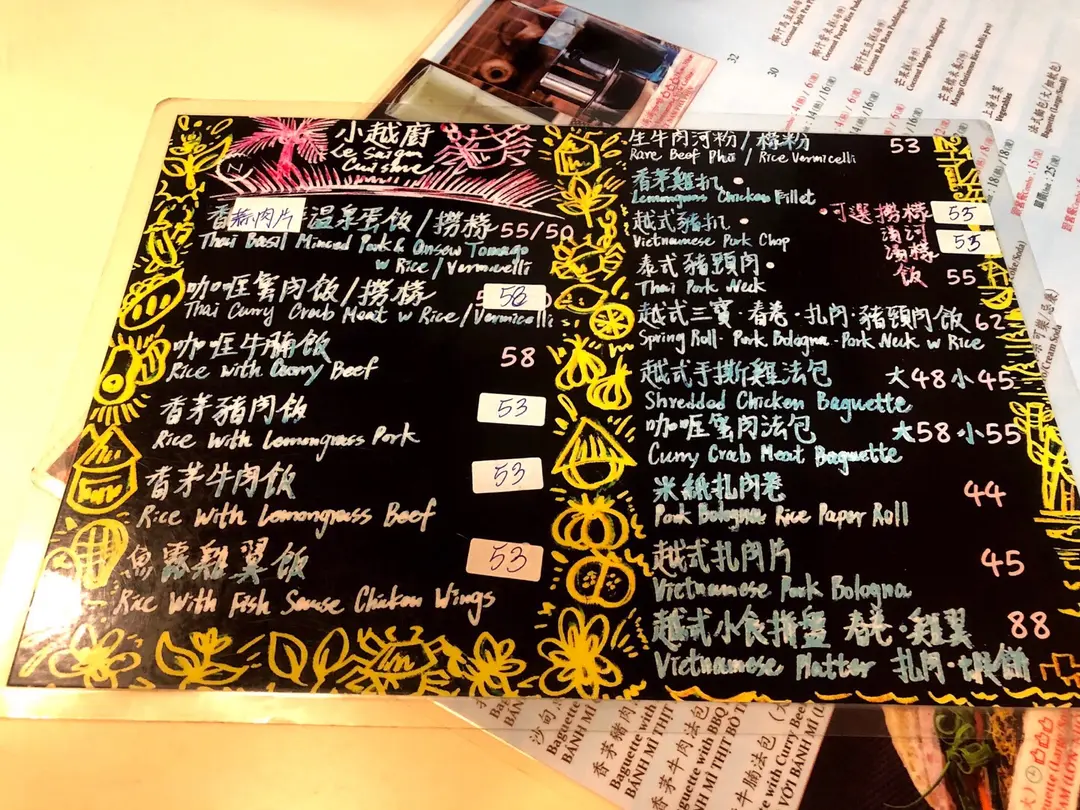 小越廚
Le Saigon
Cuisine
香 豬肉片 溫泉蛋飯/撈檬 55/50
Thai Basil Minced Pork & Onsew Tomago
w Rice/Vermicelli
咖喱蟹肉飯/撈檬 58
Thai Curry Crab Meat w Rice/Vermicelli
咖喱牛腩飯 58
Rice with Curry Beef
香茅豬肉飯 53
Rice with Lemongrass Pork
香茅牛肉飯 53
Rice with Lemongrass Beef
魚露雞翼飯 53
Rice With Fish Sause Chicken Wings
生牛肉河粉/檬粉 53
Rare Beef Phở / Rice Vermicelli
香茅雞扒 •
Lemongrass Chicken Fillet
越式豬扒 •
Vietnamese Pork Chop
泰式豬頸肉 •
Thai Pork Neck
•可選 撈檬 53
湯河
湯檬 55
飯 55
越式三寶·春卷·扎肉·豬頸肉飯 62
Spring Roll·Pork Bologna·Pork Neck w Rice
越式手撕雞法包 大48小45
Shredded Chicken Baguette
咖喱蟹肉法包 大58小55
Curry Crab Meat Baguette
米紙扎肉卷 44
Pork Bologna Rice Paper Roll
越式扎肉片 45
Vietnamese Pork Bologna
越式小食拼盤 春卷·雞翼 88
Vietnamese Platter 扎肉·蝦餅
32
30
椰汁紅豆糕(沖)
Coconut Red Bean Pudding(pc)
Coconut Purple Rice Pudding(pc)
Coconut Split Pea
芒果糕(沖)
Mango Coconut Pudding(pc)
芒果糯米卷(沖)
Mango Glutinous Rice Rolls(pc)
上海生菜
Vegetables
Baguette (Large/Small)
香茅豬肉
Baguette with BBQ
BÁNH MÌ THỊT
香茅牛肉法包
Baguette with BBQ
BÁNH MÌ THỊT BÒ
牛腩法包
Baguette with Curry Beef
VỚI BÁNH MÌ